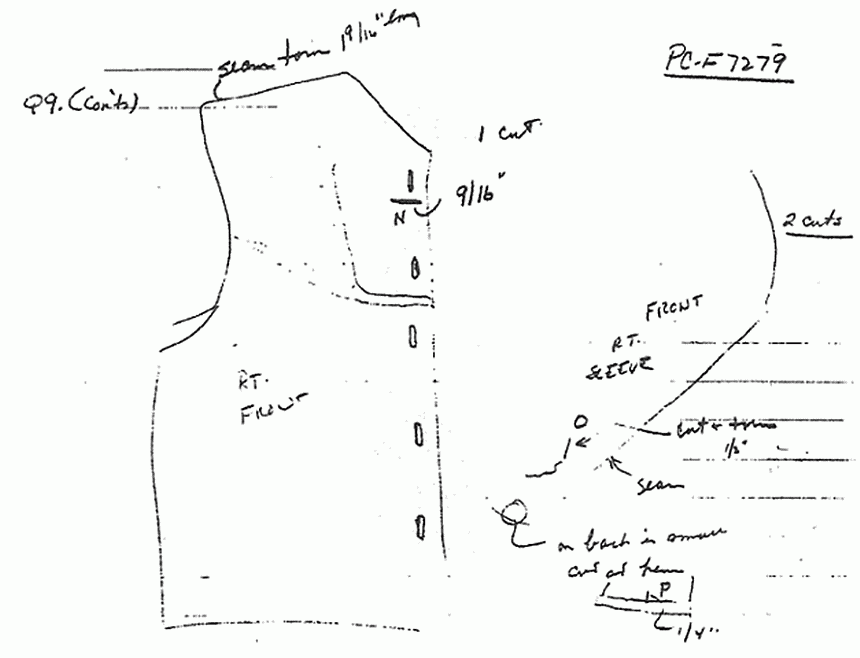 seam torn 1 9/16" long
PC-F7279
Q9. (Con'ts)
1 cut.
9/16"
N
2 cuts
FRONT
RT.
SLEEVE
RT.
FRONT
O
cut & torn
1/2"
seam
on back is small
cut at hem
P
1/4"